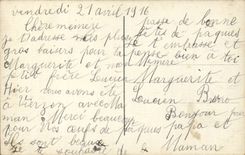 vendredi 21 avril 1916
Chère mémère
je t'adresse mes plus
gros baisers pour
Marguerite et mon
petit frère Lucien
Hier nous avons été
à Vierzon avec Ma
man Merci beaucoup
pour les œufs de Pâques
ils sont beaux
je te souhaite
passe de bonne
fêtes de pâques
je t'embrasse et
pense bien à toi
Mémère
Marguerite et
Lucien
Bonjour pour
papa et
Maman